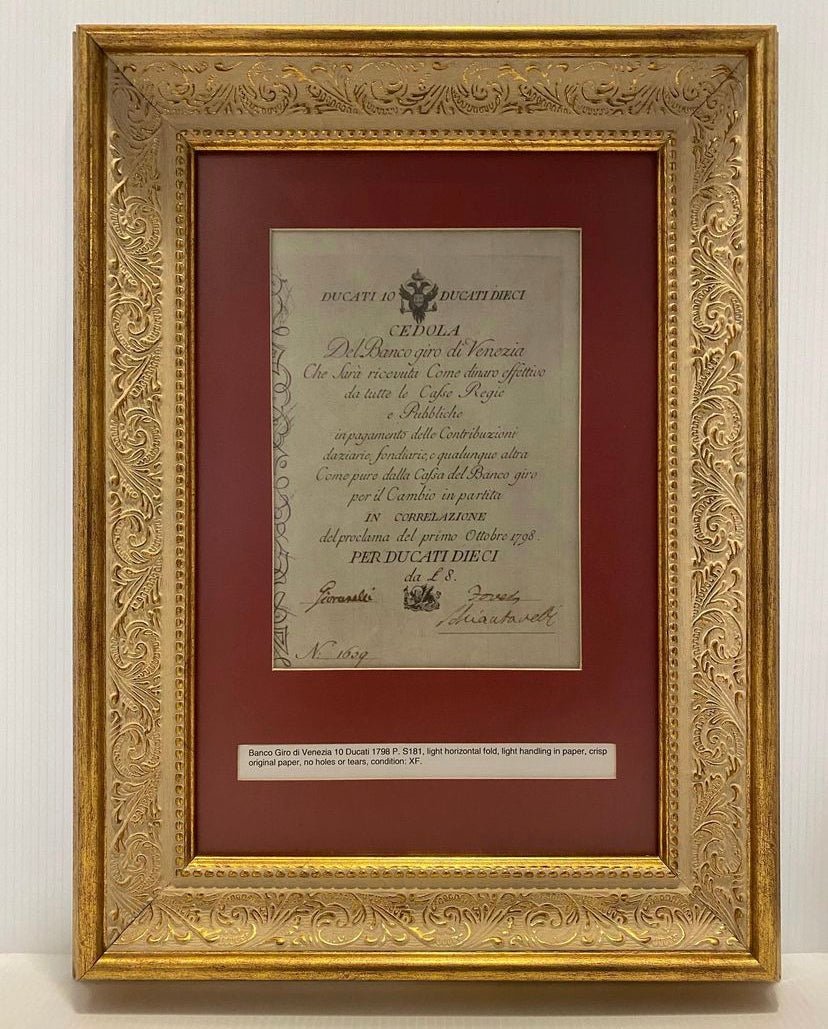 DUCATI 10 DUCATI DIECI
CEDOLA
Del Banco giro di Venezia
Che Sarà ricevuta Come dinaro effettivo
da tutte le Casse Regie
e Pubbliche
in pagamento delle Contribuzioni
daziarie, fondiarie, e qualunque altra
Come pure dalla Cassa del Banco giro
per il Cambio in partita
IN CORRELAZIONE
del proclama del primo Ottobre 1798.
PER DUCATI DIECI
da £ 8.
Giovanelli
N: 1639
Banco Giro di Venezia 10 Ducati 1798 P. S181, light horizontal fold, light handling in paper, crisp
original paper, no holes or tears, condition: XF.